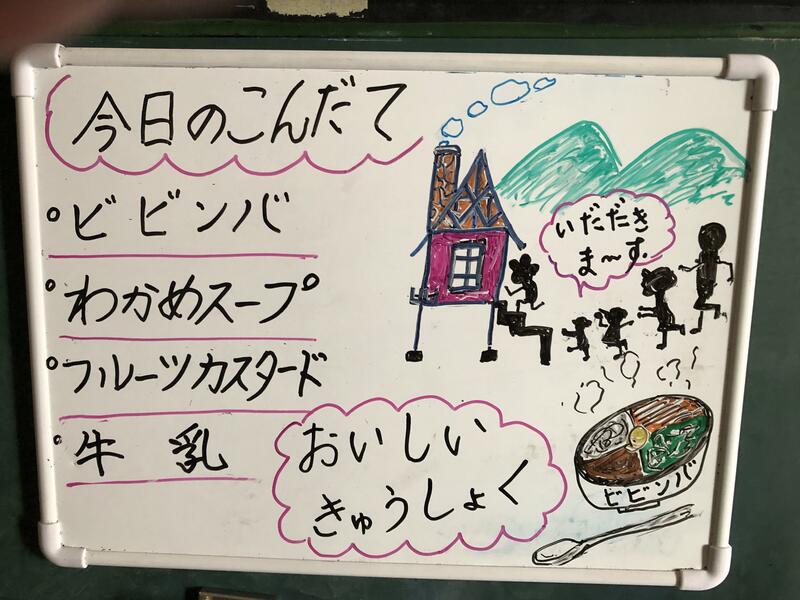 今日のこんだて
○ビビンバ
○わかめスープ
○フルーツカスタード
○牛 乳
いただき
ま〜す.
おいしい
きゅうしょく
ビビンバ